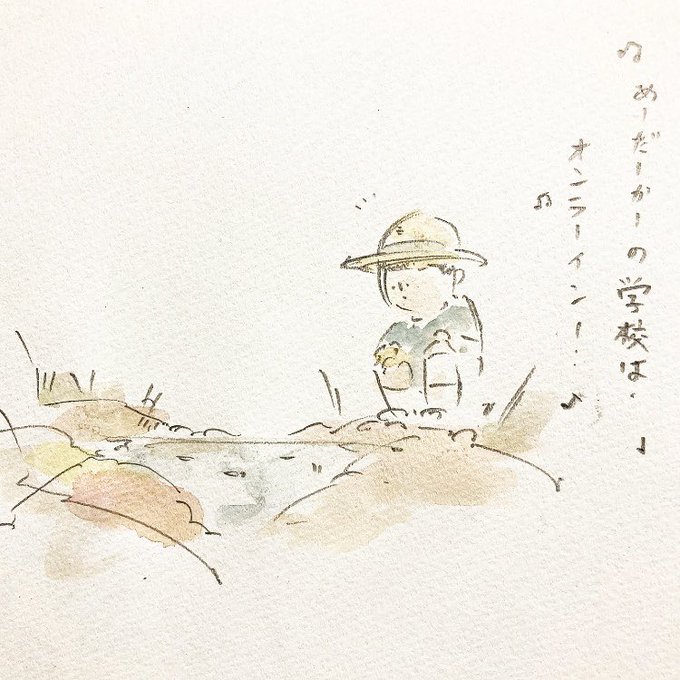 ♫めーだーかーの学校は・♩
オンラーイン！…♪
♫